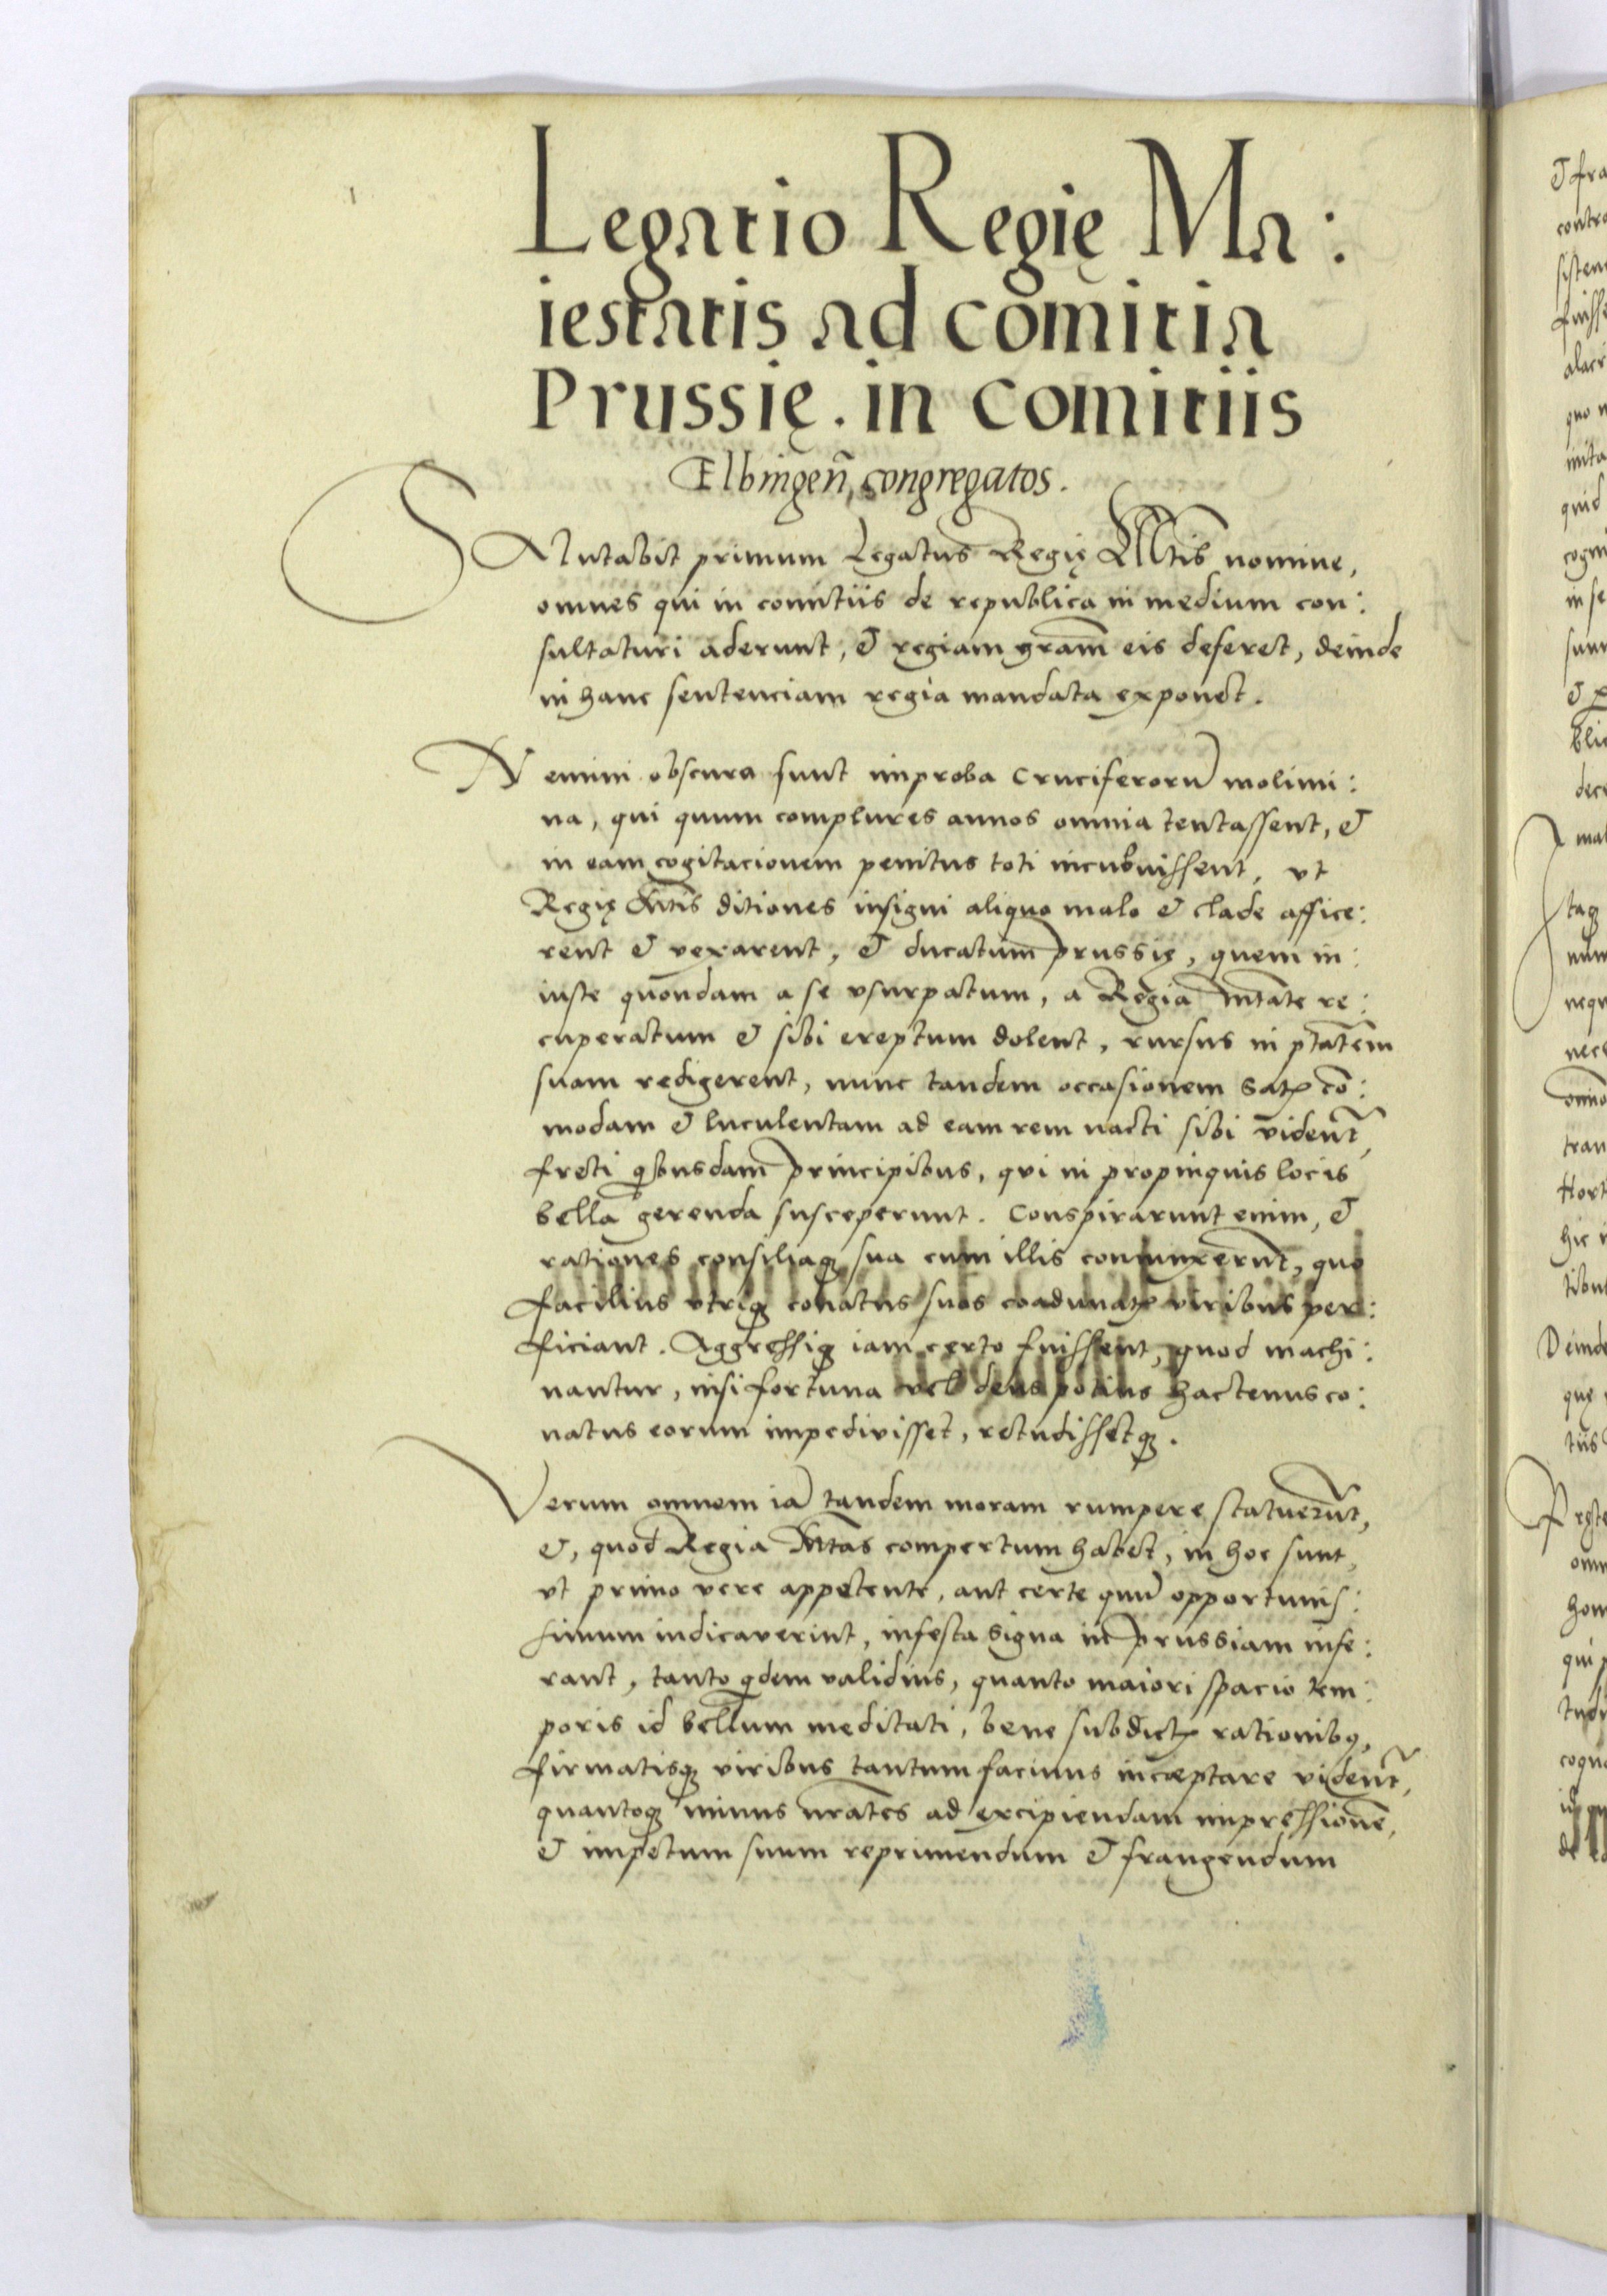 Legatio Regię Ma:
iestatis ad comitia
Prussię. in comitiis
Elbingeñ, congregatos.
SAlutabit primum Legatus Regię Mtis nomine,
omnes qui in comitiis de republica in medium con:
sultaturi aderunt, & regiam gram̃ eis deferet, deinde
in hanc sentenciam regia mandata exponet.
Nemini obscura sunt improba Cruciferorũ molimi:
na, qui quum complures annos omnia tentassent, &
in eam cogitacionem penitus toti incubuissent, vt
Regię Mtis ditiones insigni aliquo malo & clade affice:
rent & vexarent, & ducatum Prussię, quem in:
iuste quondam a se vsurpatum, a Regia Mtate re:
cuperatum & sibi ereptum dolent, rursus in ptatem
suam redigerent, nunc tandem occasionem satꝭ cõ:
modam & luculentam ad eam rem nacti sibi videnť,
freti qͥbusdam Principibus, qui in propinquis locis
bella gerenda susceperunt. Conspirarunt enim, &
rationes consiliaqꝫ sua cum illis coniunxerũt, quo
facilius vtriqꝫ conatus suos coadunatꝭ viribus per:
ficiant. Aggressiqꝫ iam certo fuissent, quod machi:
nantur, nisi fortuna vel deus potius hactenus co:
natus eorum impedivisset, retudissetqꝫ.
Verum omnem iã tandem moram rumpere statuerũt,
&, quod Regia Mtas compertum habet, in hoc sunt,
vt primo vere appetente, aut certe quũ opportunis:
simum indicaverint, infesta signa in Prussiam infe:
rant, tanto qͥdem validius, quanto maiori spacio tem:
poris id bellum meditati, bene subdictꝭ rationibꝰ,
firmatisqꝫ viribus tantum facinus incęptare videnť,
quantoqꝫ minus nrates ad excipiendam impressionẽ,
& impetum suum reprimendum & frangendum